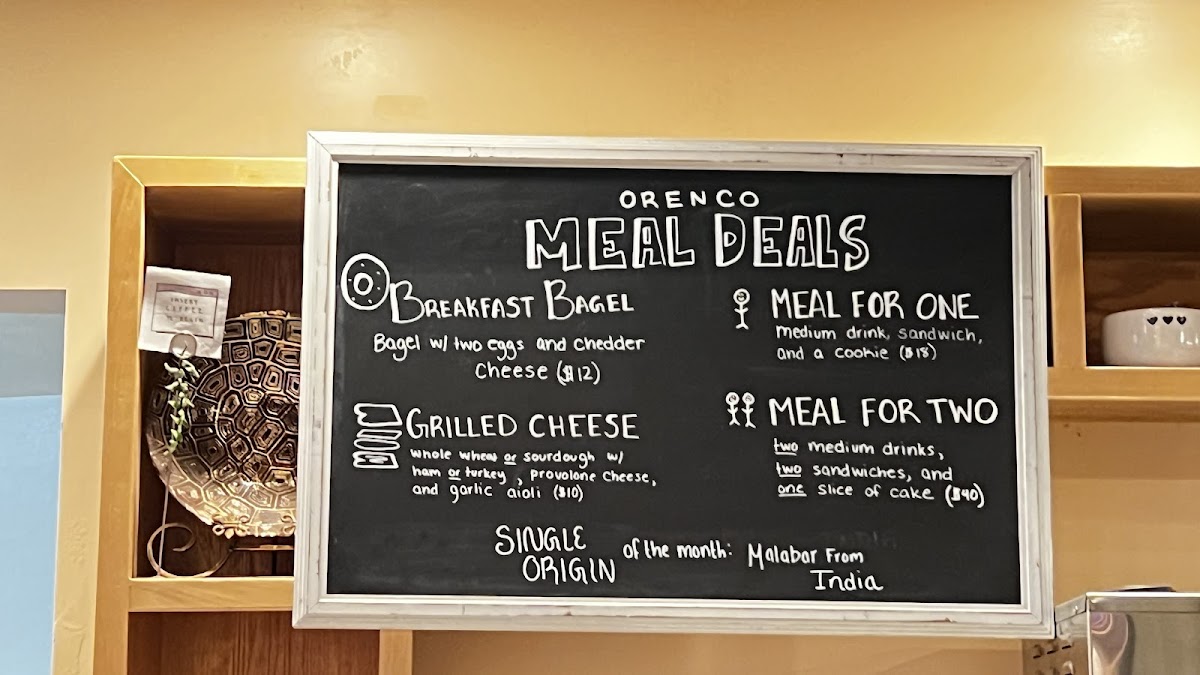 ORENCO
MEAL DEALS
BREAKFAST BAGEL
Bagel w/ two eggs and chedder
cheese ($12)
GRILLED CHEESE
whole wheat or sourdough w/
ham or turkey, provolone cheese,
and garlic aioli ($10)
MEAL FOR ONE
medium drink, sandwich,
and a cookie ($18)
MEAL FOR TWO
two medium drinks,
two sandwiches, and
one slice of cake ($40)
SINGLE
ORIGIN
of the month:
Malabar From
India
INSERT
COFFEE
TO BEGIN